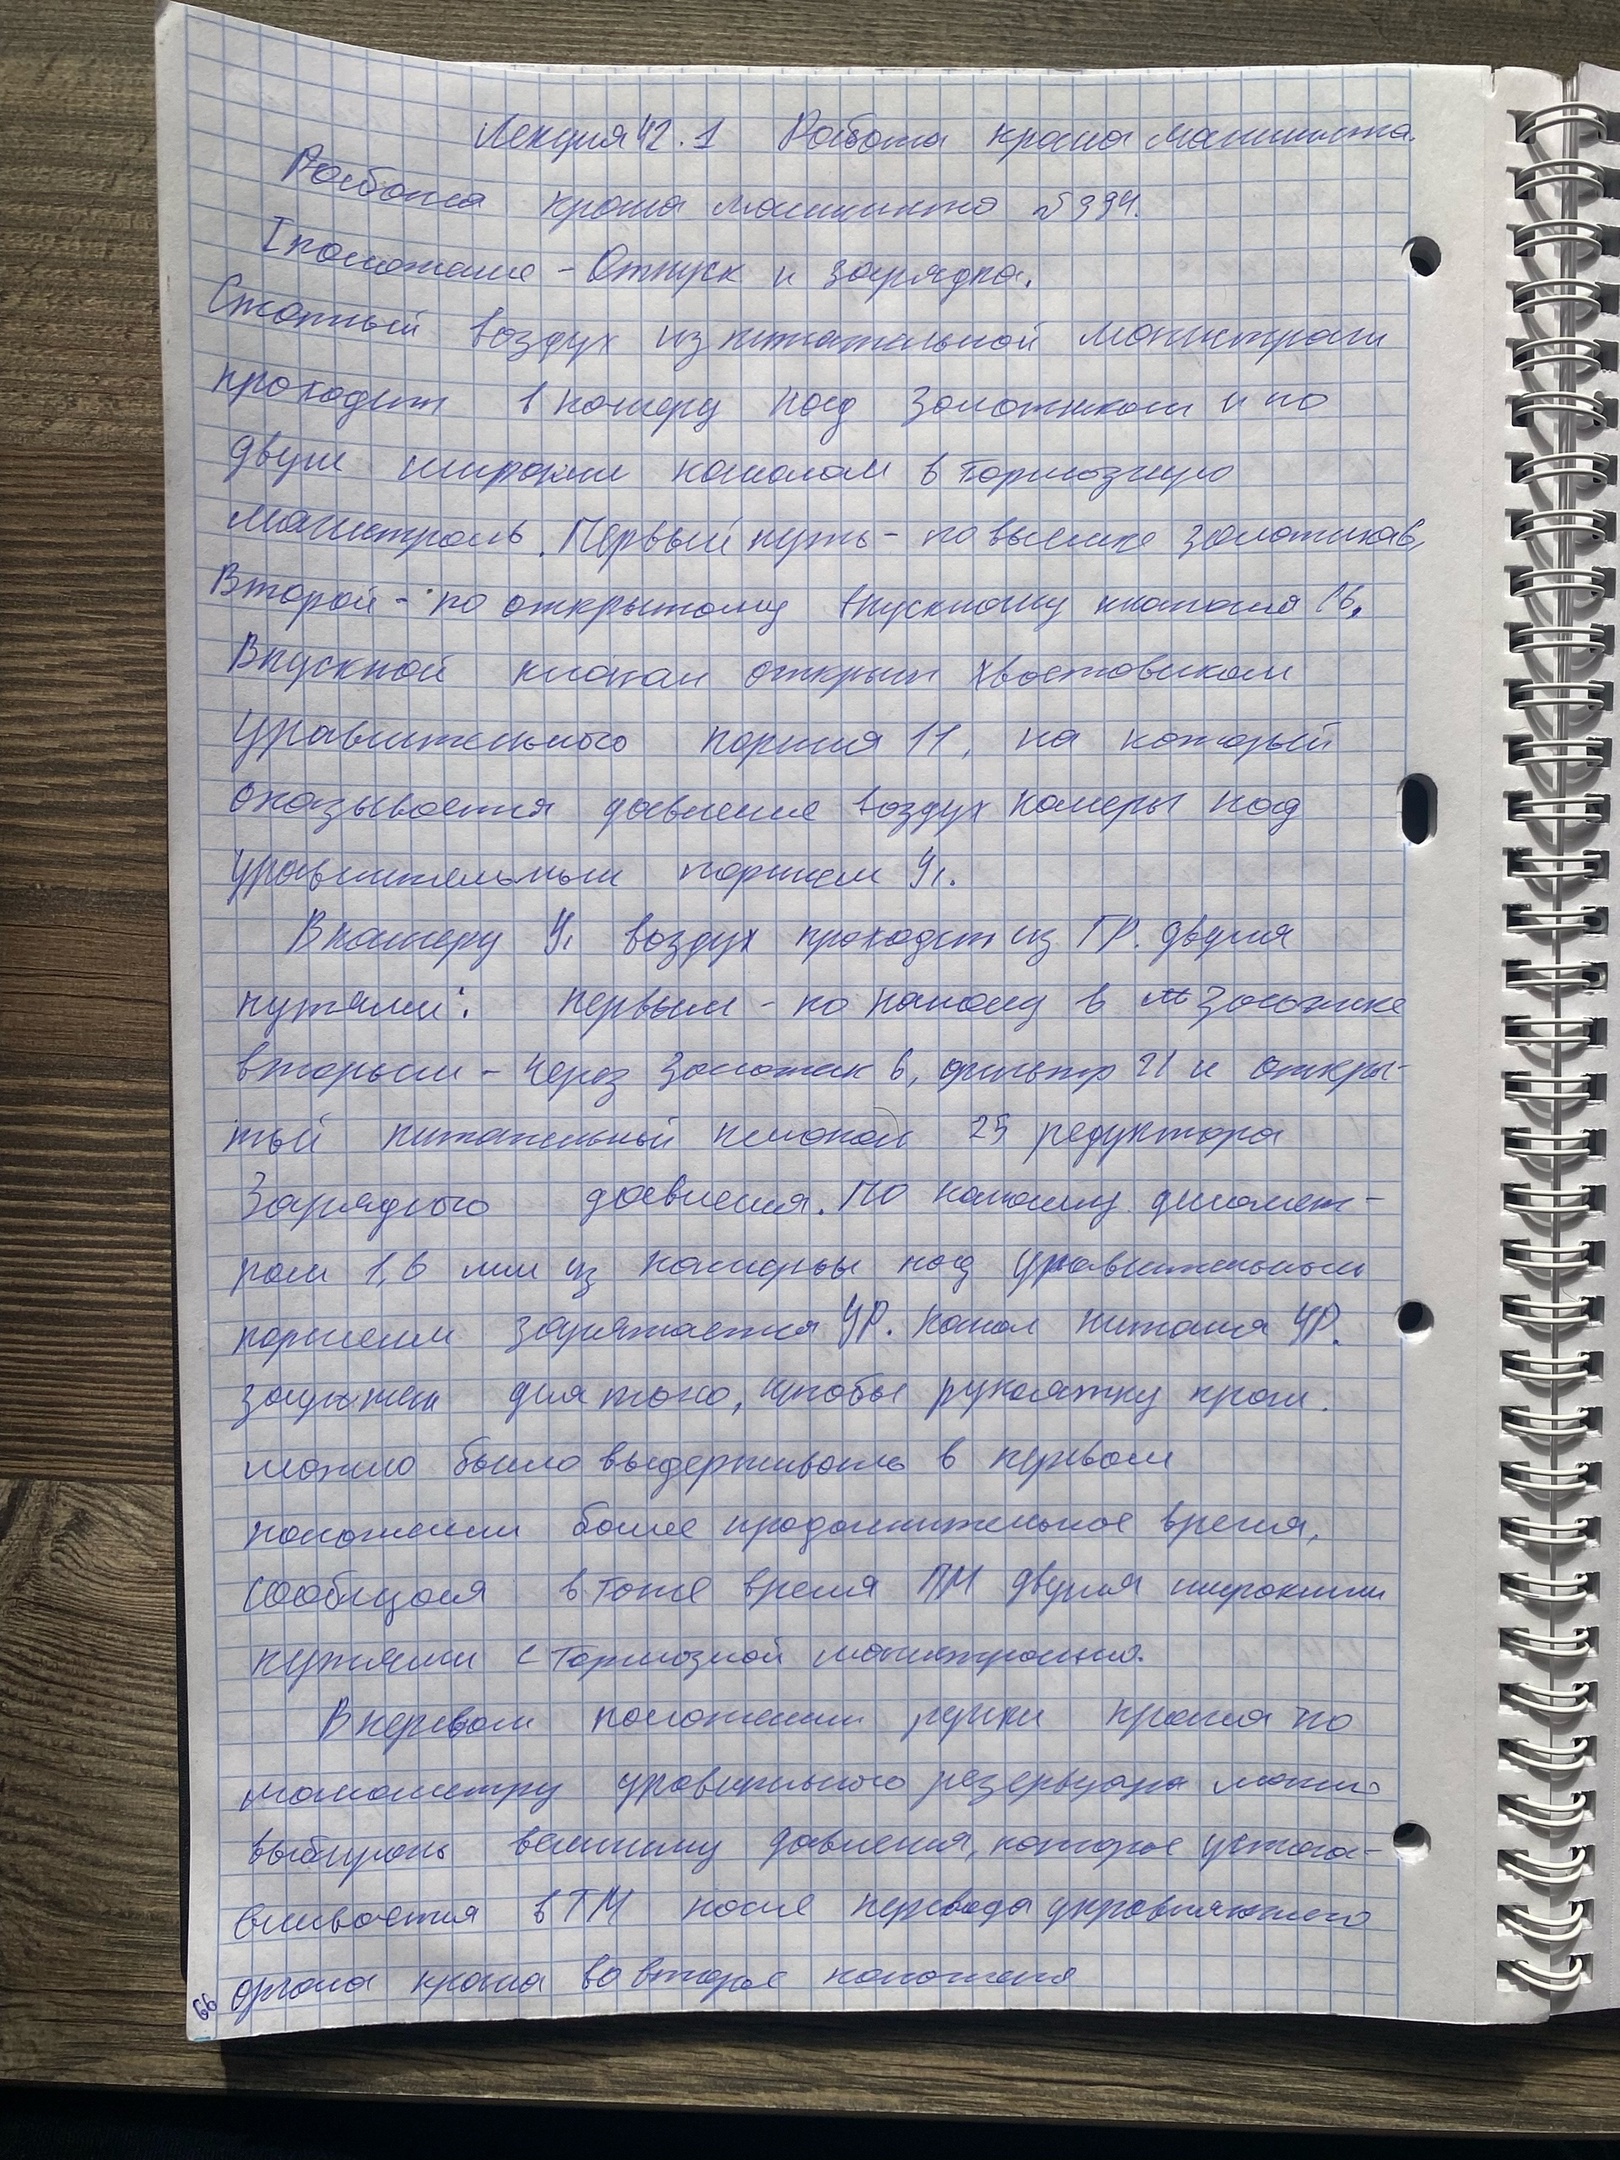 Лекция 42.1 Работа крана машиниста.
Работа крана машиниста №394.
I положение - Отпуск и зарядка.
Сжатый воздух из питательной магистрали
проходит в камеру над золотником и по
двум широким каналам в тормозную
магистраль. Первый путь - по выемке золотника 6,
Второй - по открытому впускному клапана 16,
Впускной клапан открыт хвостовиком
уравнительного поршня 11, на который
оказывается давление воздух камеры над
уравнительным поршнем У1.
В камеру У1 воздух проходит из ГР. двумя
путями: первым - по каналу в золотнике
вторым - через золотник 6, фильтр 21 и откры-
тый питательный клапан 25 редуктора
Зарядного давления. По каналу диамет-
ром 1,6 мм из камеры над уравнительным
поршнем заряжается УР. канал питания УР.
заужен для того, чтобы рукоятку кран.
можно было выдерживать в первом
положении более продолжительное время,
сообщая в тоже время ПМ двумя широкими
путями с тормозной магистралью.
В первом положении ручки крана по
манометру уравнительного резервуара можно
выбирать величину давления, которое устана-
вливается в ТМ после перевода управляющего
органа крана во второе положения
66